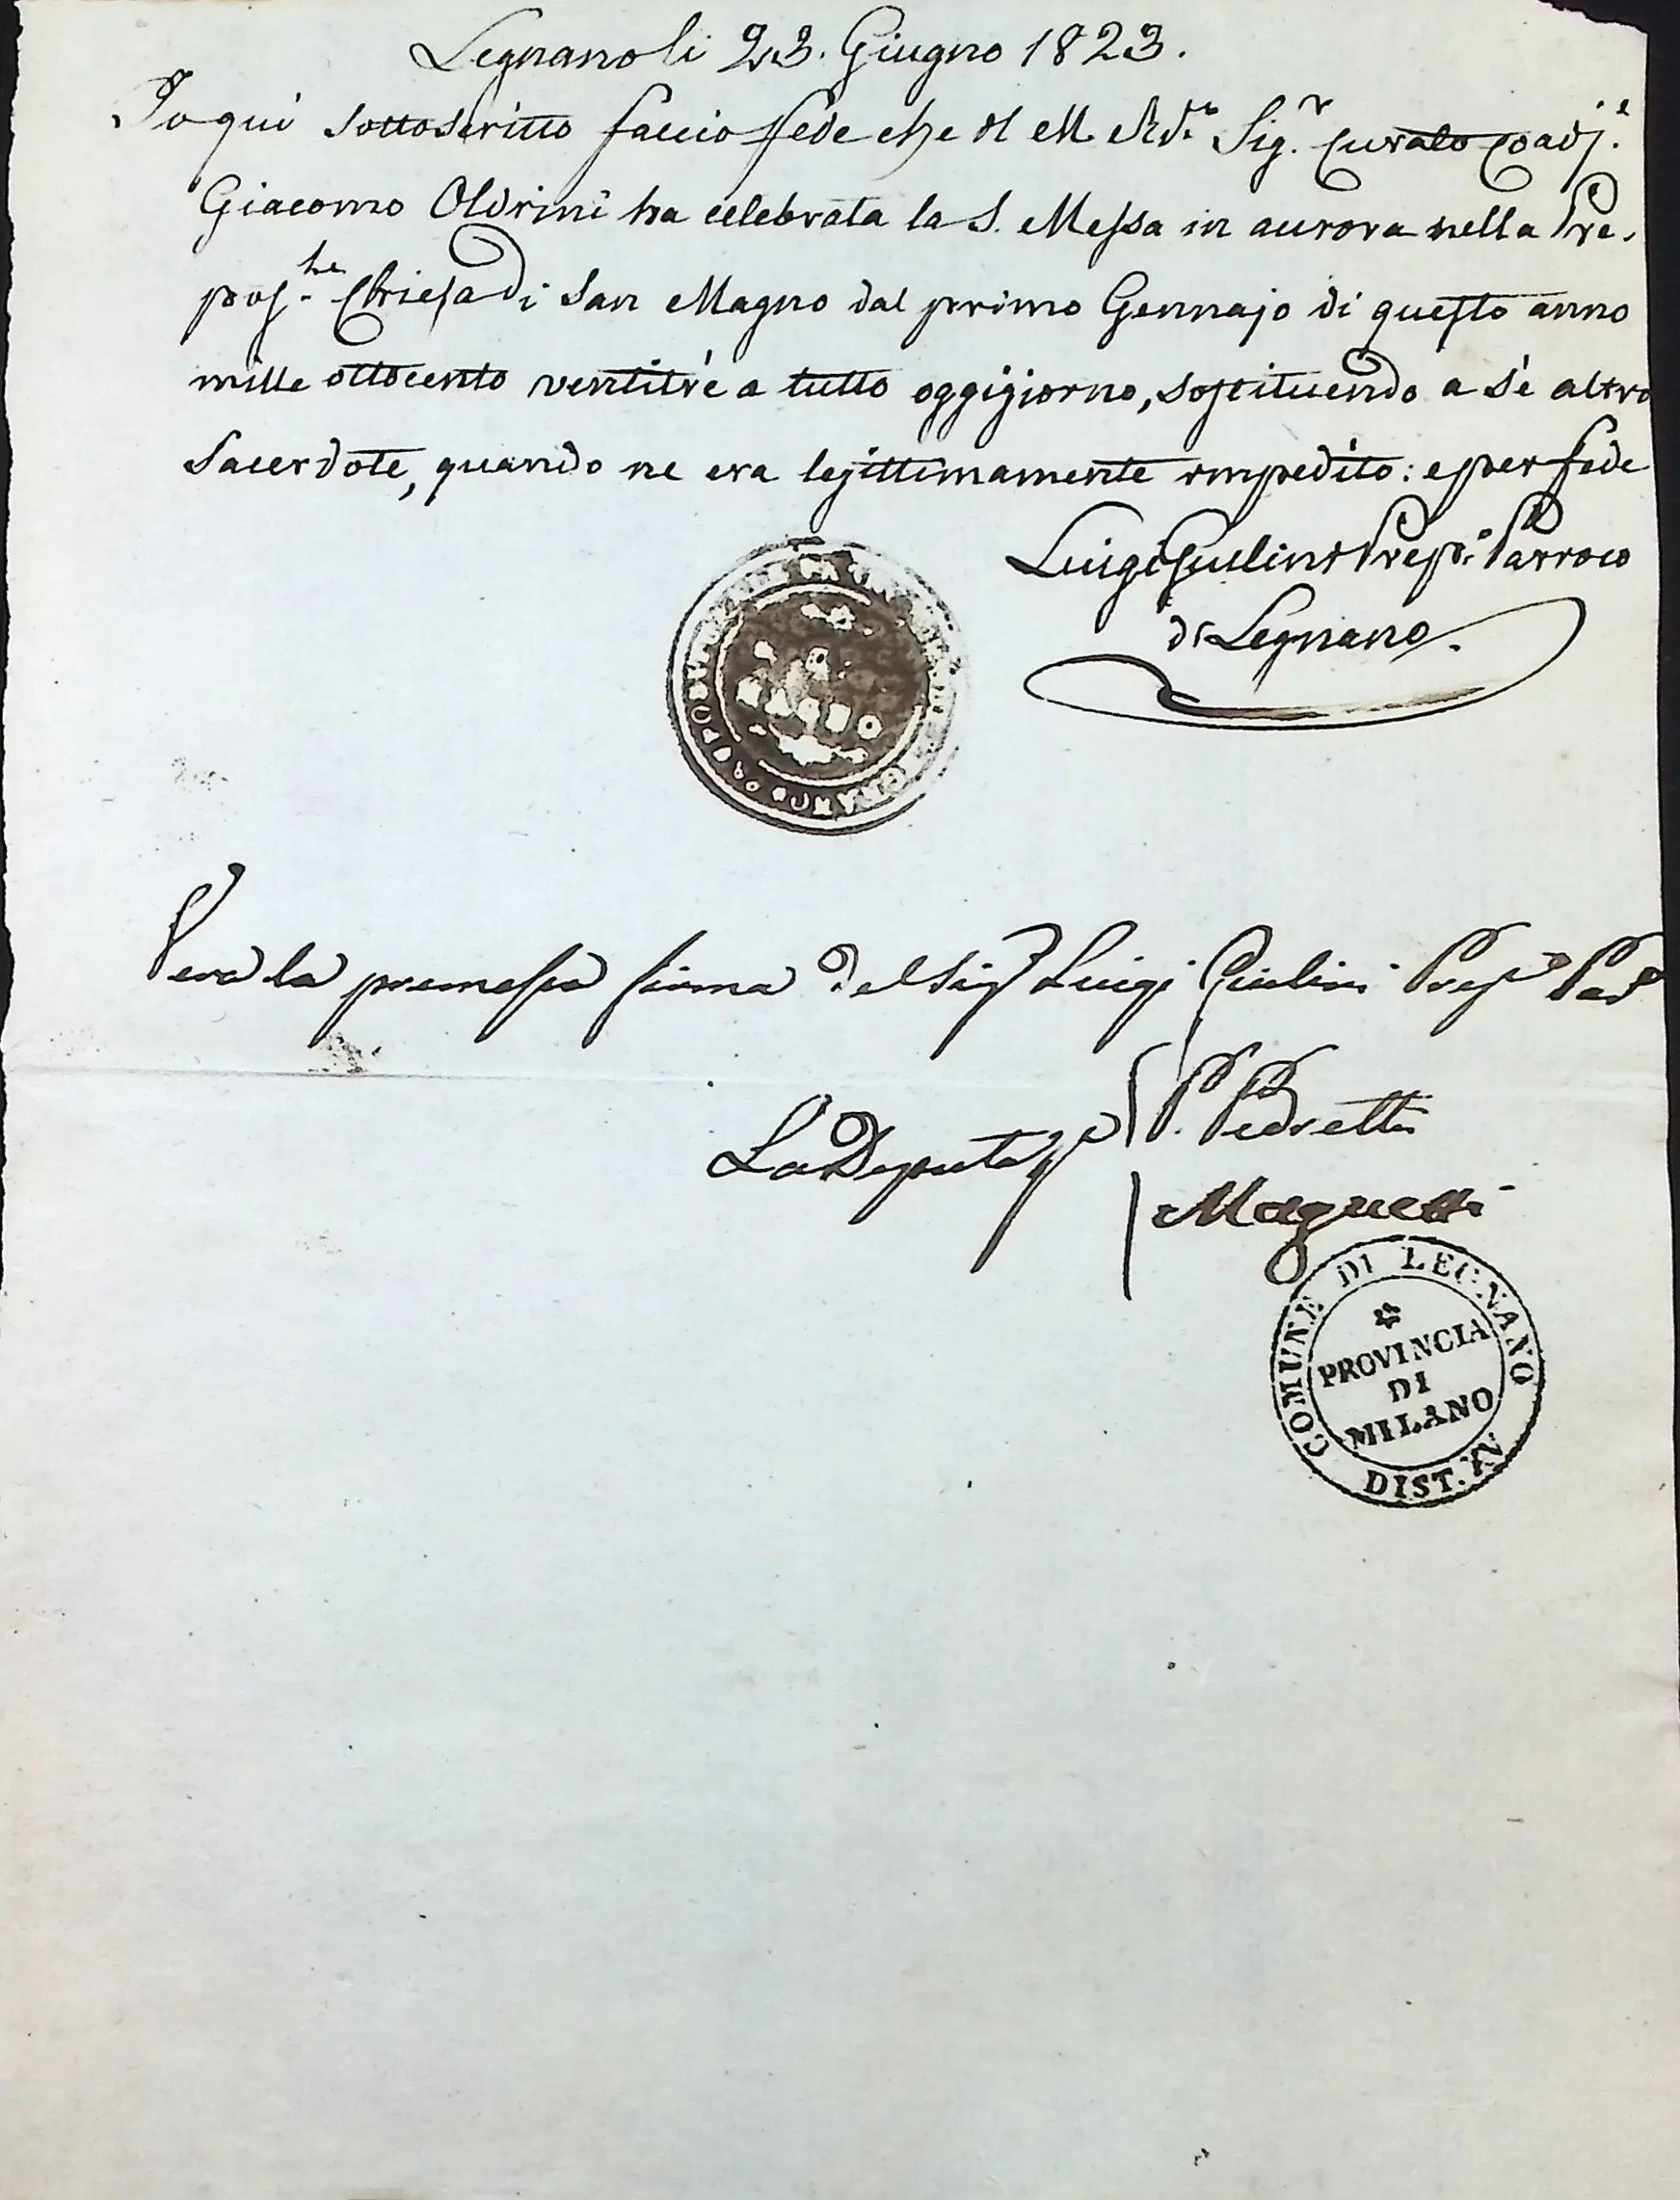 Legnano li 23. Giugno 1823.
Io qui sottoscritto faccio fede che il M. Rdo. Sig.r Curato Coadj.e
Giacomo Oldrini ha celebrata la S. Messa in aurora nella Pre,
pos.le Chiesa di San Magno dal primo Gennajo di questo anno
mille ottocento ventitrè a tutto oggigiorno, sostituendo a sè altro
Sacerdote, quando ne era legittimamente impedito: e per fede
Luigi Giulini Prep.o Parroco
di Legnano.
MAGNO
Vera la premessa firma del Sigr Luigi Giulini Prep.o Par.o
La Deputaz.e P. Pedretti
Magnetti
COMUNE DI LEGNANO
PROVINCIA
DI
MILANO
DIST. XV